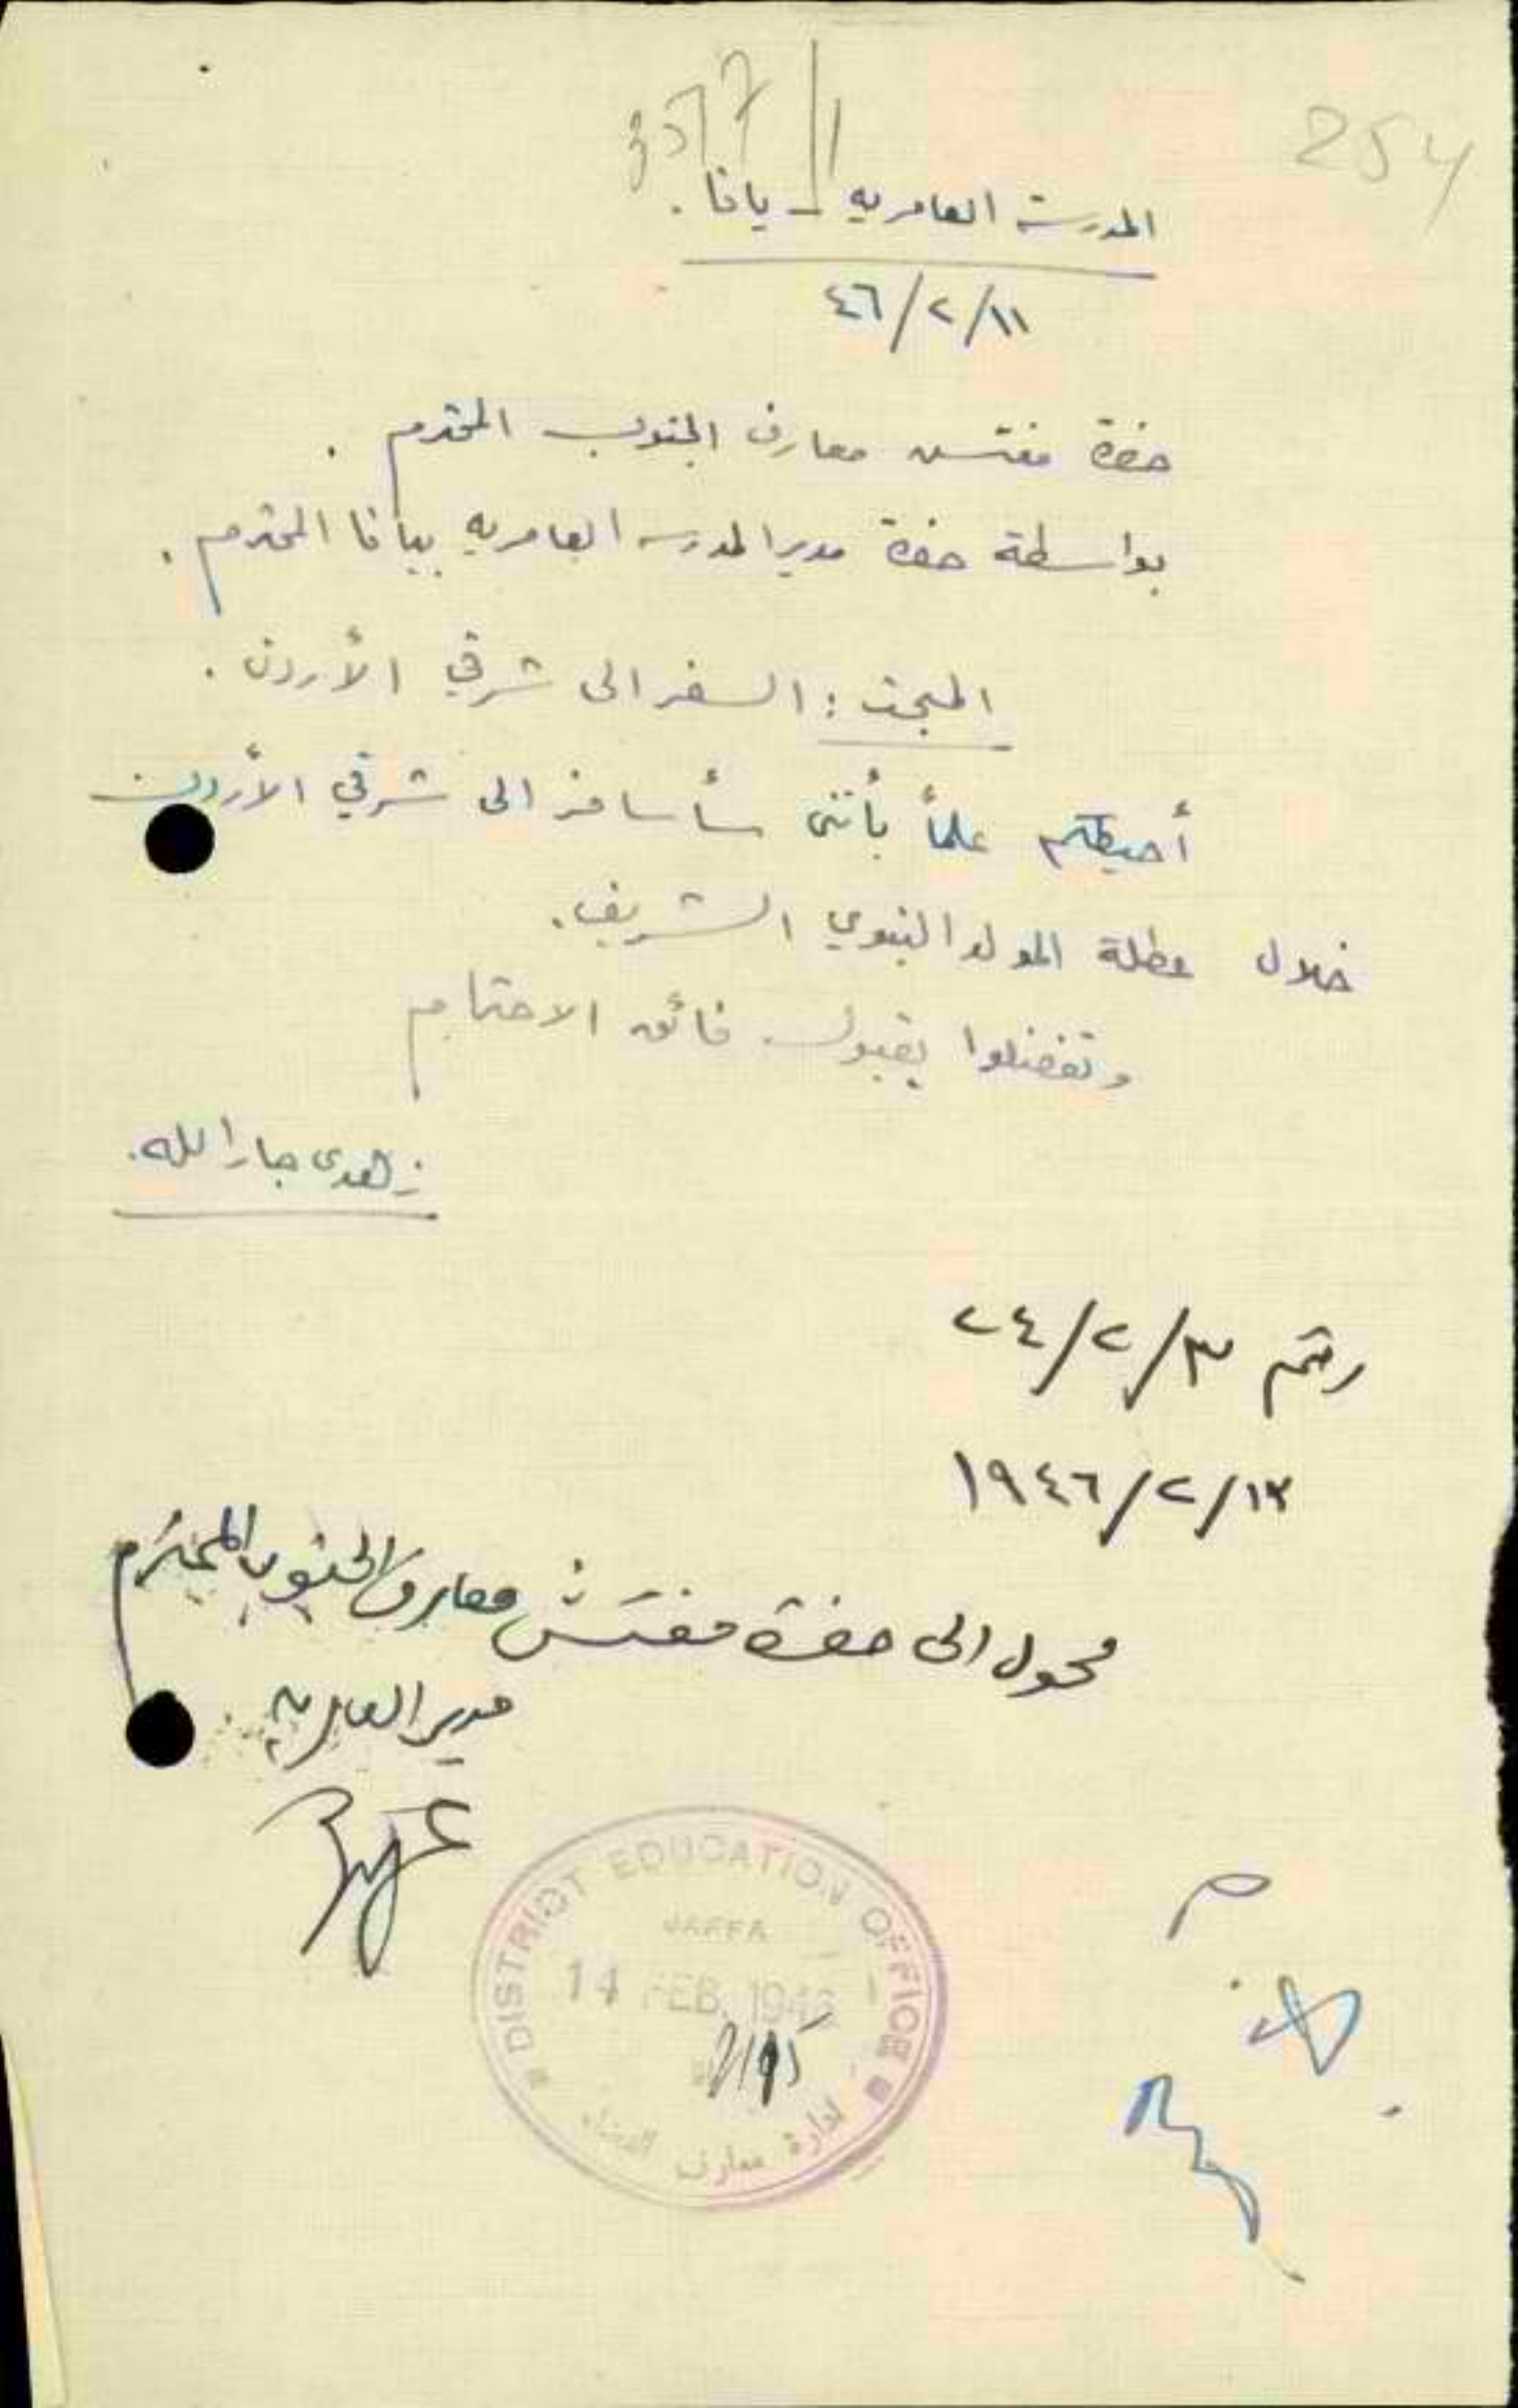 254
المدرسة العامريه - يافا.
٤٦/٢/١١
حضرة مفتش معارف الجنوب المحترم .
بواسطة حضرة مدير المدرسه العامريه بيافا المحترم .
المبحث : السفر الى شرقي الأردن .
أحيطكم علماً بأنني سأسافر الى شرقي الأردن
خلال عطلة المولد النبوي الشريف .
وتفضلوا بقبول فائق الاحترام
زهدى جار الله .
رقم ٢٤/٢/٣
١٩٤٦/٢/١٣
محول الى حضرة مفتش معارف الجنوب المحترم
مدير العامرية
DISTRICT EDUCATION OFFICE
JAFFA
14 FEB 1946
ادارة معارف اللواء